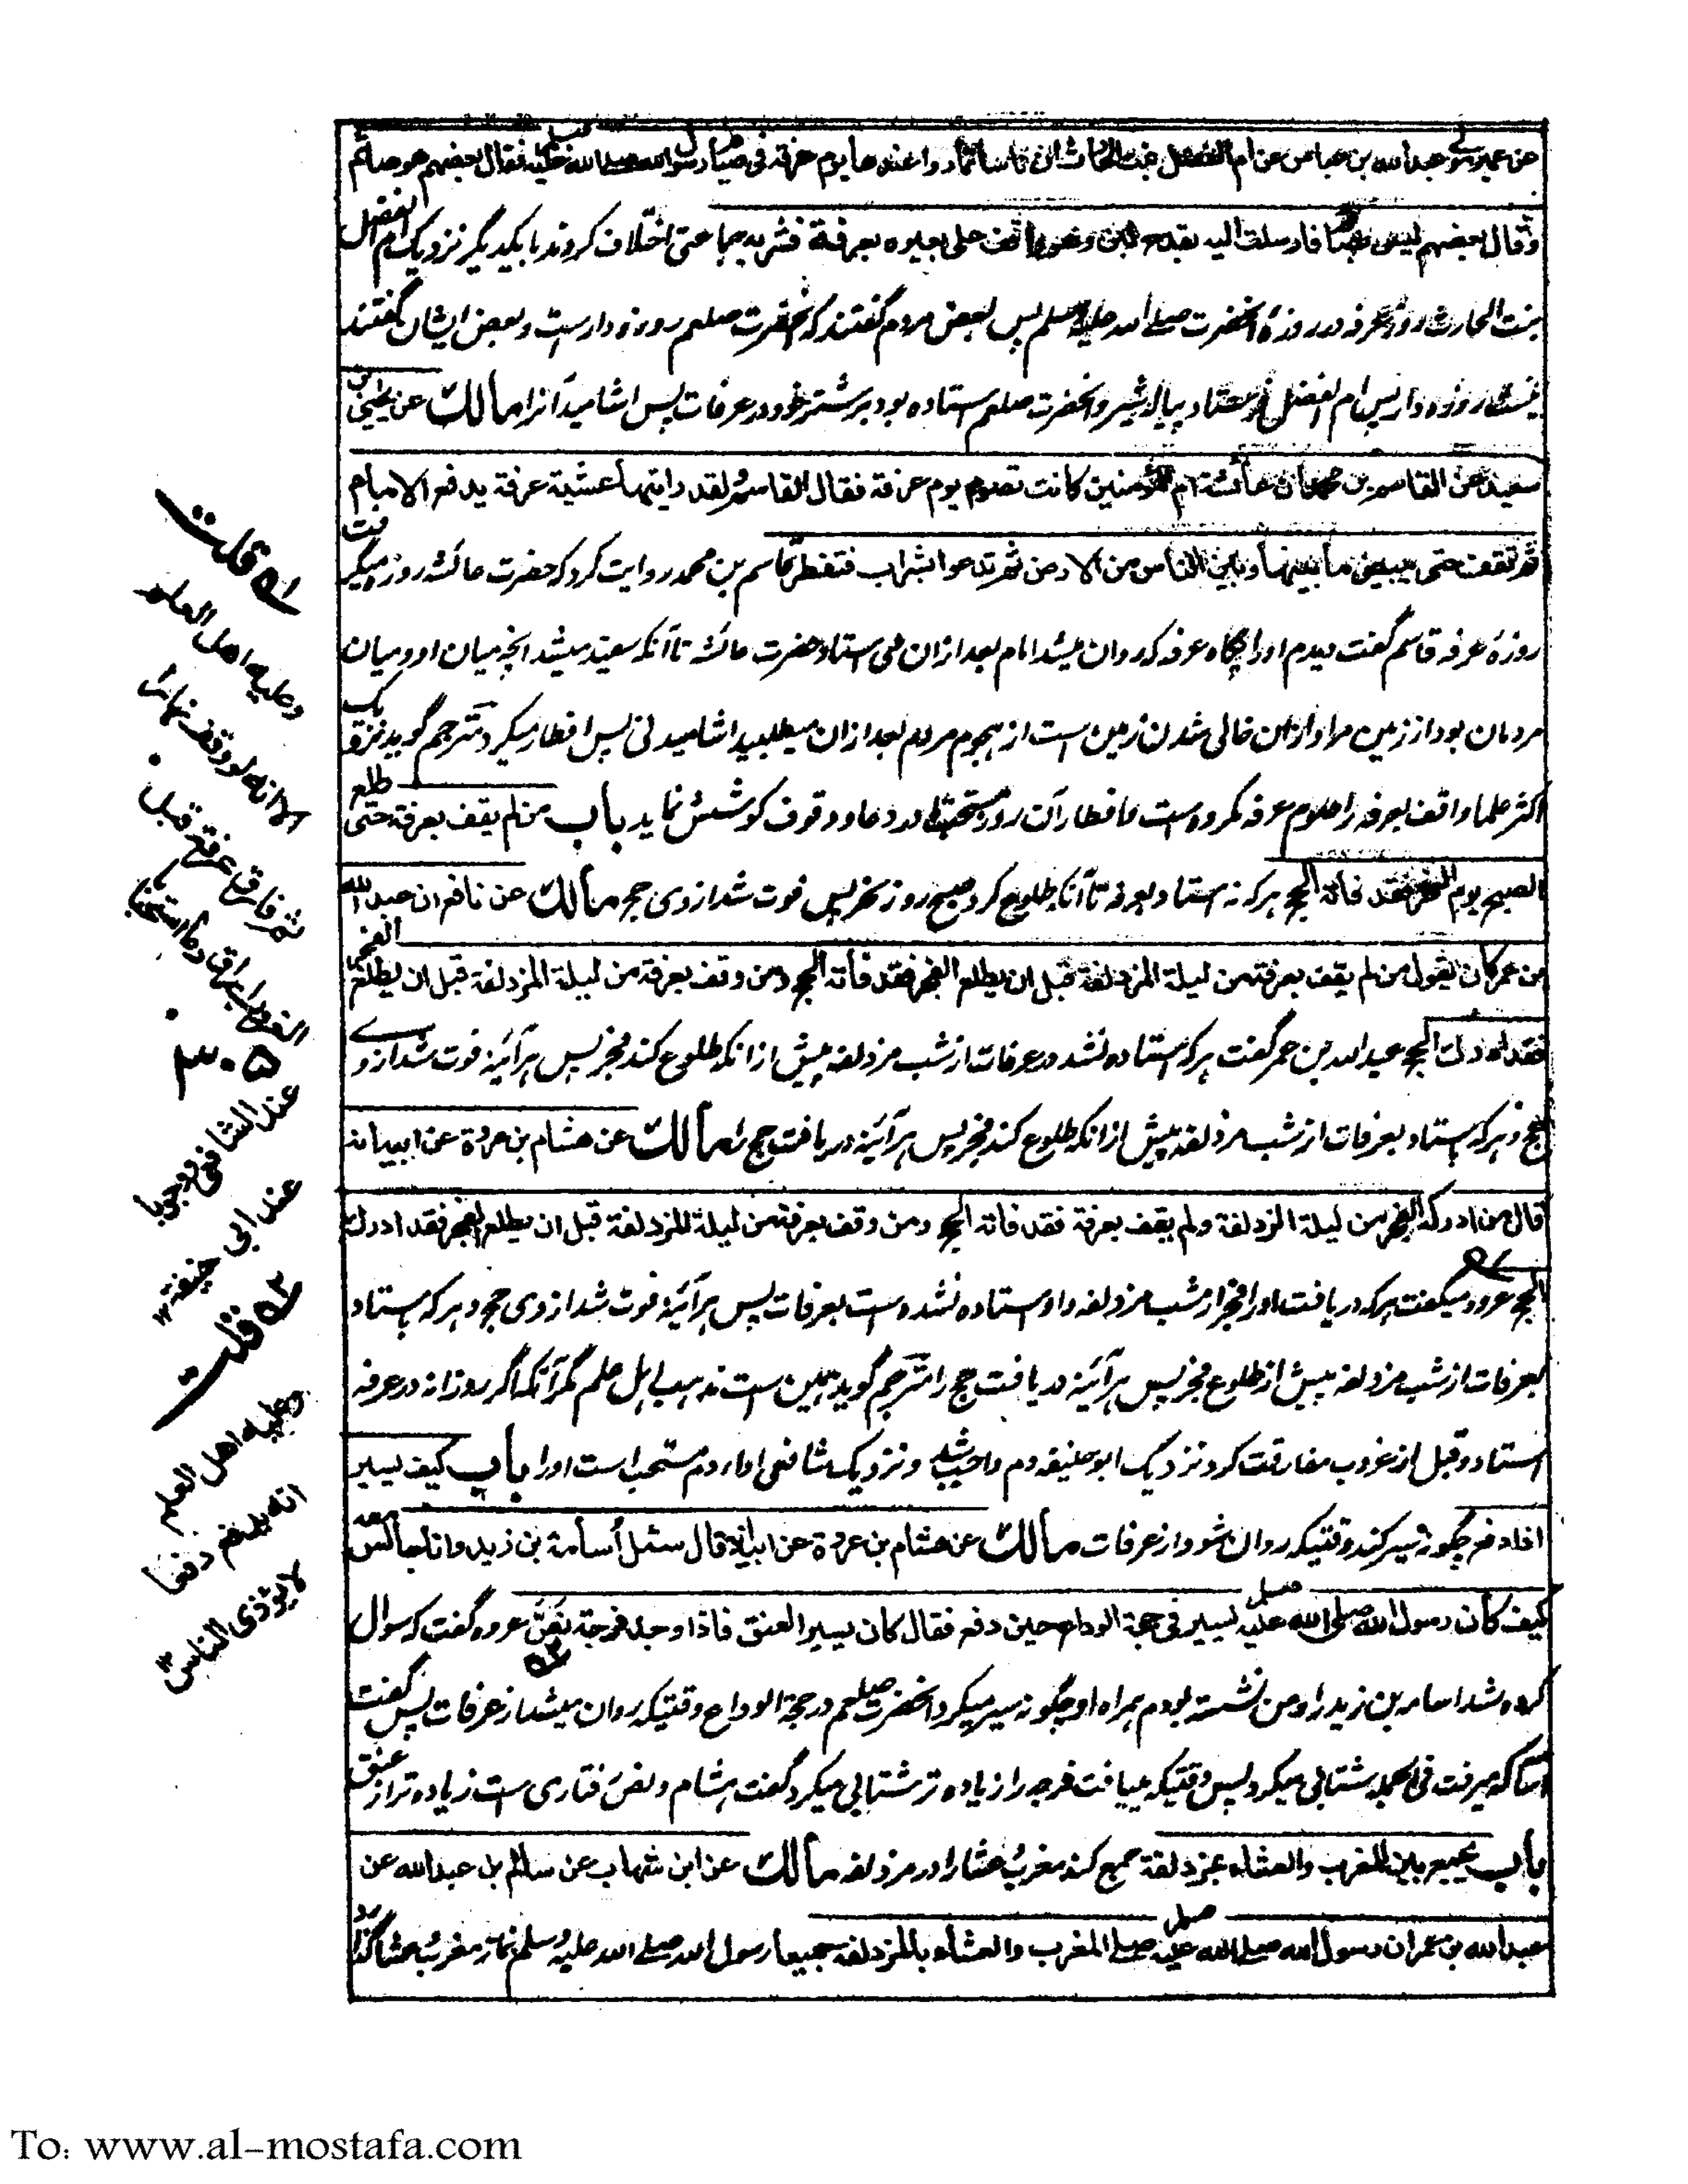 عن عمير مولى عبدالله بن عباس عن ام الفضل بنت الحارث ان ناسا تماروا عندها يوم عرفة فى صيام رسول الله صلى الله عليه فقال بعضهم هو صائم
وقال بعضهم ليس بصائم فارسلت اليه بقدح لبن وهو واقف على بعيره بعرفة فشربه جماعتى اختلاف كردند با يكديگر نزديك ام الفضل
بنت الحارث روز عرفه در روزهٔ آنحضرت صلے الله عليه وسلم پس بعض مردم گفتند كه آنحضرت صلعم روزه دارست وبعض ايشان گفتند
نيست روزه دار پس ام الفضل فرستاد پياله شير و آنحضرت صلعم ستاده بود بر شتر خود در عرفات پس اشاميد آنرا مالك عن يحيى بن
سعيد عن القاسم بن محمد ان عائشة ام المؤمنين كانت تصوم يوم عرفة فقال القاسم ولقد رايتها عشية عرفة يدفع الامام
ثم تقف حتى يبيض ما بينها وبين الناس من الارض ثم تدعو بشراب فتفطر قاسم بن محمد روايت كرد كه حضرت عائشه روزه ميگرفت
روزهٔ عرفه قاسم گفت ديدم اورا پگاه عرفه كه روان ميشد امام بعد ازان مى ستاد حضرت عائشه تا آنكه سفيد ميشد آنچه ميان او و ميان
مردمان بود از زمين مراد ازان خالى شدن زمين است از هجوم مردم بعد ازان ميطلبيد اشاميدنى پس افطار ميكرد مترجم گويد نزديك
اكثر علما واقف بعرفه را صوم عرفه مكروه ست و افطار آن روز مستحب تا در دعا و وقوف كوشش نمايد باب من لم يقف بعرفة حتى طلع
الصبح يوم النحر فقد فاته الحج هر كه نه استاد بعرفه تا آنكه طلوع كرد صبح روز نحر پس فوت شد از وى حج مالك عن نافع ان عبد الله
بن عمر كان يقول من لم يقف بعرفة من ليلة المزدلفة قبل ان يطلع الفجر فقد فاته الحج ومن وقف بعرفة من ليلة المزدلفة قبل ان يطلع الفجر
فقد ادرك الحج عبد الله بن عمر گفت هر كه استاده نشد در عرفات از شب مزدلفه پيش ازانكه طلوع كند فجر پس هر آئينه فوت شد از وے
حج و هر كه استاد بعرفات از شب مزدلفه پيش ازانكه طلوع كند فجر پس هر آئينه دريافت حج را مالك عن هشام بن عروة عن ابيه انه
قال من ادركه الفجر من ليلة المزدلفة ولم يقف بعرفة فقد فاته الحج ومن وقف بعرفة من ليلة المزدلفة قبل ان يطلع الفجر فقد ادرك
الحج عروه ميگفت هر كه دريافت اورا فجر از شب مزدلفه و او ستاده نشده ست بعرفات پس هر آئينه فوت شد از وى حج و هر كه بستاد
بعرفات از شب مزدلفه پيش از طلوع فجر پس هر آئينه دريافت حج را مترجم گويد همين ست مذهب اهل علم مگر آنكه اگر روزانه در عرفه
استاد و قبل از غروب مفارقت كرد نزديك ابوحنيفه دم واجب شد و نزديك شافعى اداء دم مستحب است اورا باب كيف يسير
اذا دفع چگونه سير كند وقتيكه روان شود از عرفات مالك عن هشام بن عروة عن ابيه انه قال سئل أسامة بن زيد وانا جالس معه
كيف كان رسول الله صلى الله عليه يسير فى حجة الوداع حين دفع فقال كان يسير العنق فاذا وجد فرجة نصّ عروه گفت كه سوال
كرده شد اسامه بن زيد را و من نشسته بودم همراه او چگونه سير ميكرد آنحضرت صلعم در حجة الوداع وقتيكه روان ميشد از عرفات پس گفت
اسامه كه ميرفت فى الجمله شتابى ميكرد پس وقتيكه مييافت فرجه را زياده تر شتابى ميكرد گفت هشام و نص رفتارى ست زياده تر از عنق
باب يجمع بين المغرب والعشاء بمزدلفة جمع كند مغرب و عشا را در مزدلفه مالك عن ابن شهاب عن سالم بن عبدالله عن
عبد الله بن عمر ان رسول الله صلى الله عليه صلے المغرب والعشاء بالمزدلفة جميعا رسول الله صلے الله عليه وسلم نماز مغرب و عشا گذارد
قلت
وعليه اهل العلم
الا انه لو وقف نهارًا
ثم فارق عرفة قبل
الغروب اراق دما استحبابا
عند الشافعى ووجوبا
عند ابى حنيفة ١٢
قلت
وعليه اهل العلم
انه يدفع دفعًا
لا يؤذى الناس ١٢
To: www.al-mostafa.com